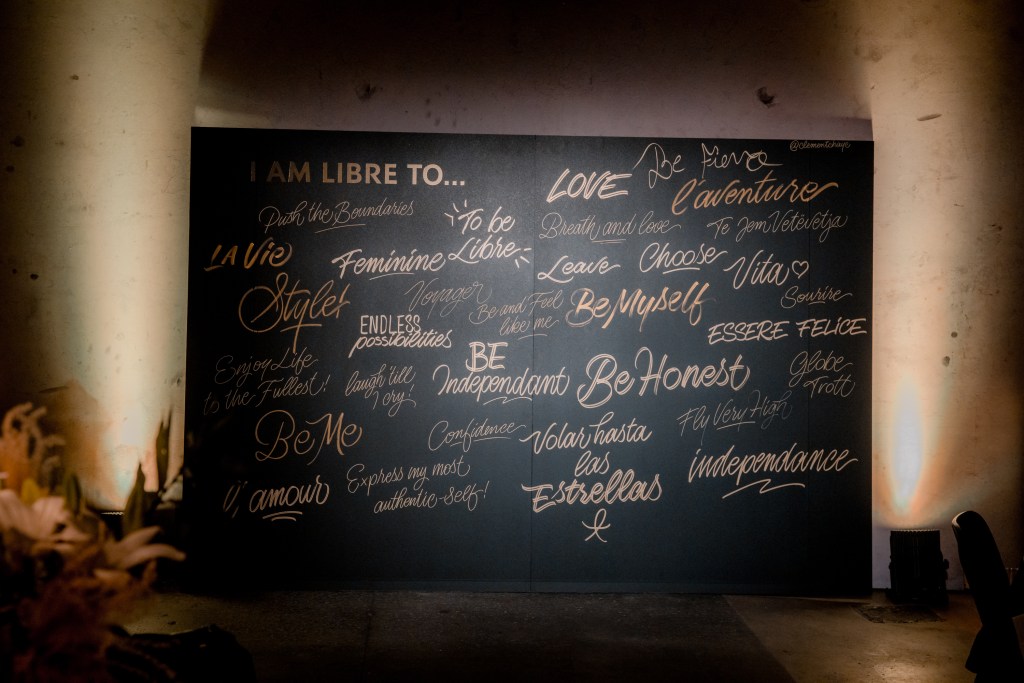 I AM LIBRE TO...
Push the Boundaries
To be
Libre
LA Vie
Feminine
Style!
Voyager
Be and Feel
like me
ENDLESS
possibilities
Enjoy Life
to the Fullest!
laugh 'till
I cry!
BE
Independant
Be Me
Confidence
Express my most
authentic-self!
amour
@clementchaye
LOVE
Be Fierce
l'aventure
Breath and love
Te Jem Vetëvetja
Leave
Choose
Vita
Sourire
Be Myself
ESSERE FELICE
Be Honest
Globe
Trott
Fly Very High
Volar hasta
las
Estrellas
independance